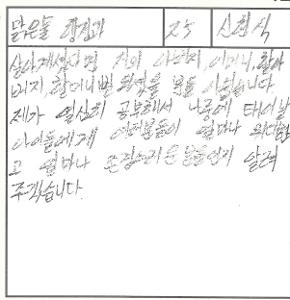 맑은물 25 신형식
살아계셨다면 저의 아버지, 어머니, 할아
버지, 할머니뻘 되셨을 분들 이십니다.
제가 열심히 공부해서 나중에 태어날
아이들에게 여러분들이 얼마나 위대한
고 얼마나 존경스러운 분들인지 알려
주겠습니다.